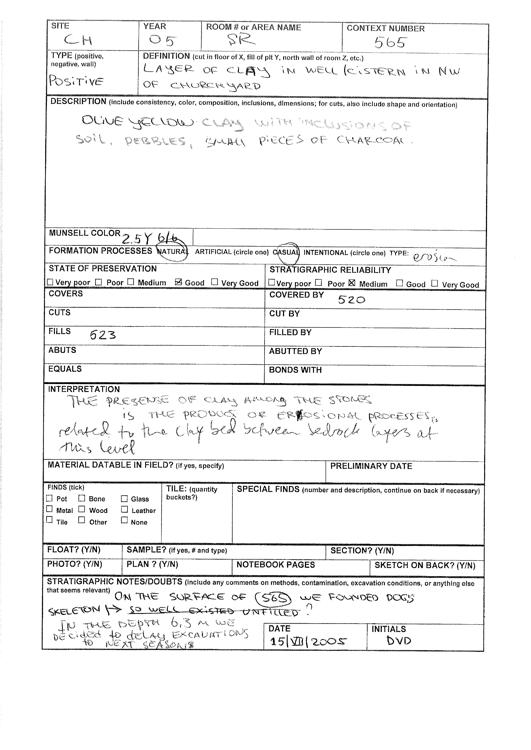 SITE YEAR ROOM # or AREA NAME CONTEXT NUMBER
CH 05 SR 565
TYPE (positive, negative, wall) DEFINITION (cut in floor of X, fill of pit Y, north wall of room Z, etc.)
POSITIVE LAYER OF CLAY IN WELL/CISTERN IN NW
OF CHURCHYARD
DESCRIPTION (include consistency, color, composition, inclusions, dimensions; for cuts, also include shape and orientation)
OLIVE YELLOW CLAY WITH INCLUSIONS OF
SOIL, PEBBLES, SMALL PIECES OF CHARCOAL.
MUNSELL COLOR 2.5Y 6/6
FORMATION PROCESSES NATURAL ARTIFICIAL (circle one) CASUAL INTENTIONAL (circle one) TYPE: erosion
STATE OF PRESERVATION STRATIGRAPHIC RELIABILITY
☐ Very poor ☐ Poor ☐ Medium ☑ Good ☐ Very Good ☐ Very poor ☐ Poor ☒ Medium ☐ Good ☐ Very Good
COVERS COVERED BY 520
CUTS CUT BY
FILLS 523 FILLED BY
ABUTS ABUTTED BY
EQUALS BONDS WITH
INTERPRETATION
THE PRESENSE OF CLAY AMONG THE STONES
IS THE PRODUCT OF EROSIONAL PROCESSES,
related to the clay bed between bedrock layers at
this level
MATERIAL DATABLE IN FIELD? (if yes, specify) PRELIMINARY DATE
FINDS (tick) TILE: (quantity buckets?) SPECIAL FINDS (number and description, continue on back if necessary)
☐ Pot ☐ Bone ☐ Glass
☐ Metal ☐ Wood ☐ Leather
☐ Tile ☐ Other ☐ None
FLOAT? (Y/N) SAMPLE? (if yes, # and type) SECTION? (Y/N)
PHOTO? (Y/N) PLAN ? (Y/N) NOTEBOOK PAGES SKETCH ON BACK? (Y/N)
STRATIGRAPHIC NOTES/DOUBTS (include any comments on methods, contamination, excavation conditions, or anything else
that seems relevant) ON THE SURFACE OF (565) WE FOUNDED DOGS
SKELETON → SO WELL EXISTED UNFILLED?
IN THE DEPTH 6,3 M WE
DECIDED TO DELAY EXCAVATIONS
TO NEXT SEASONS
DATE INITIALS
15/VII/2005 DVD